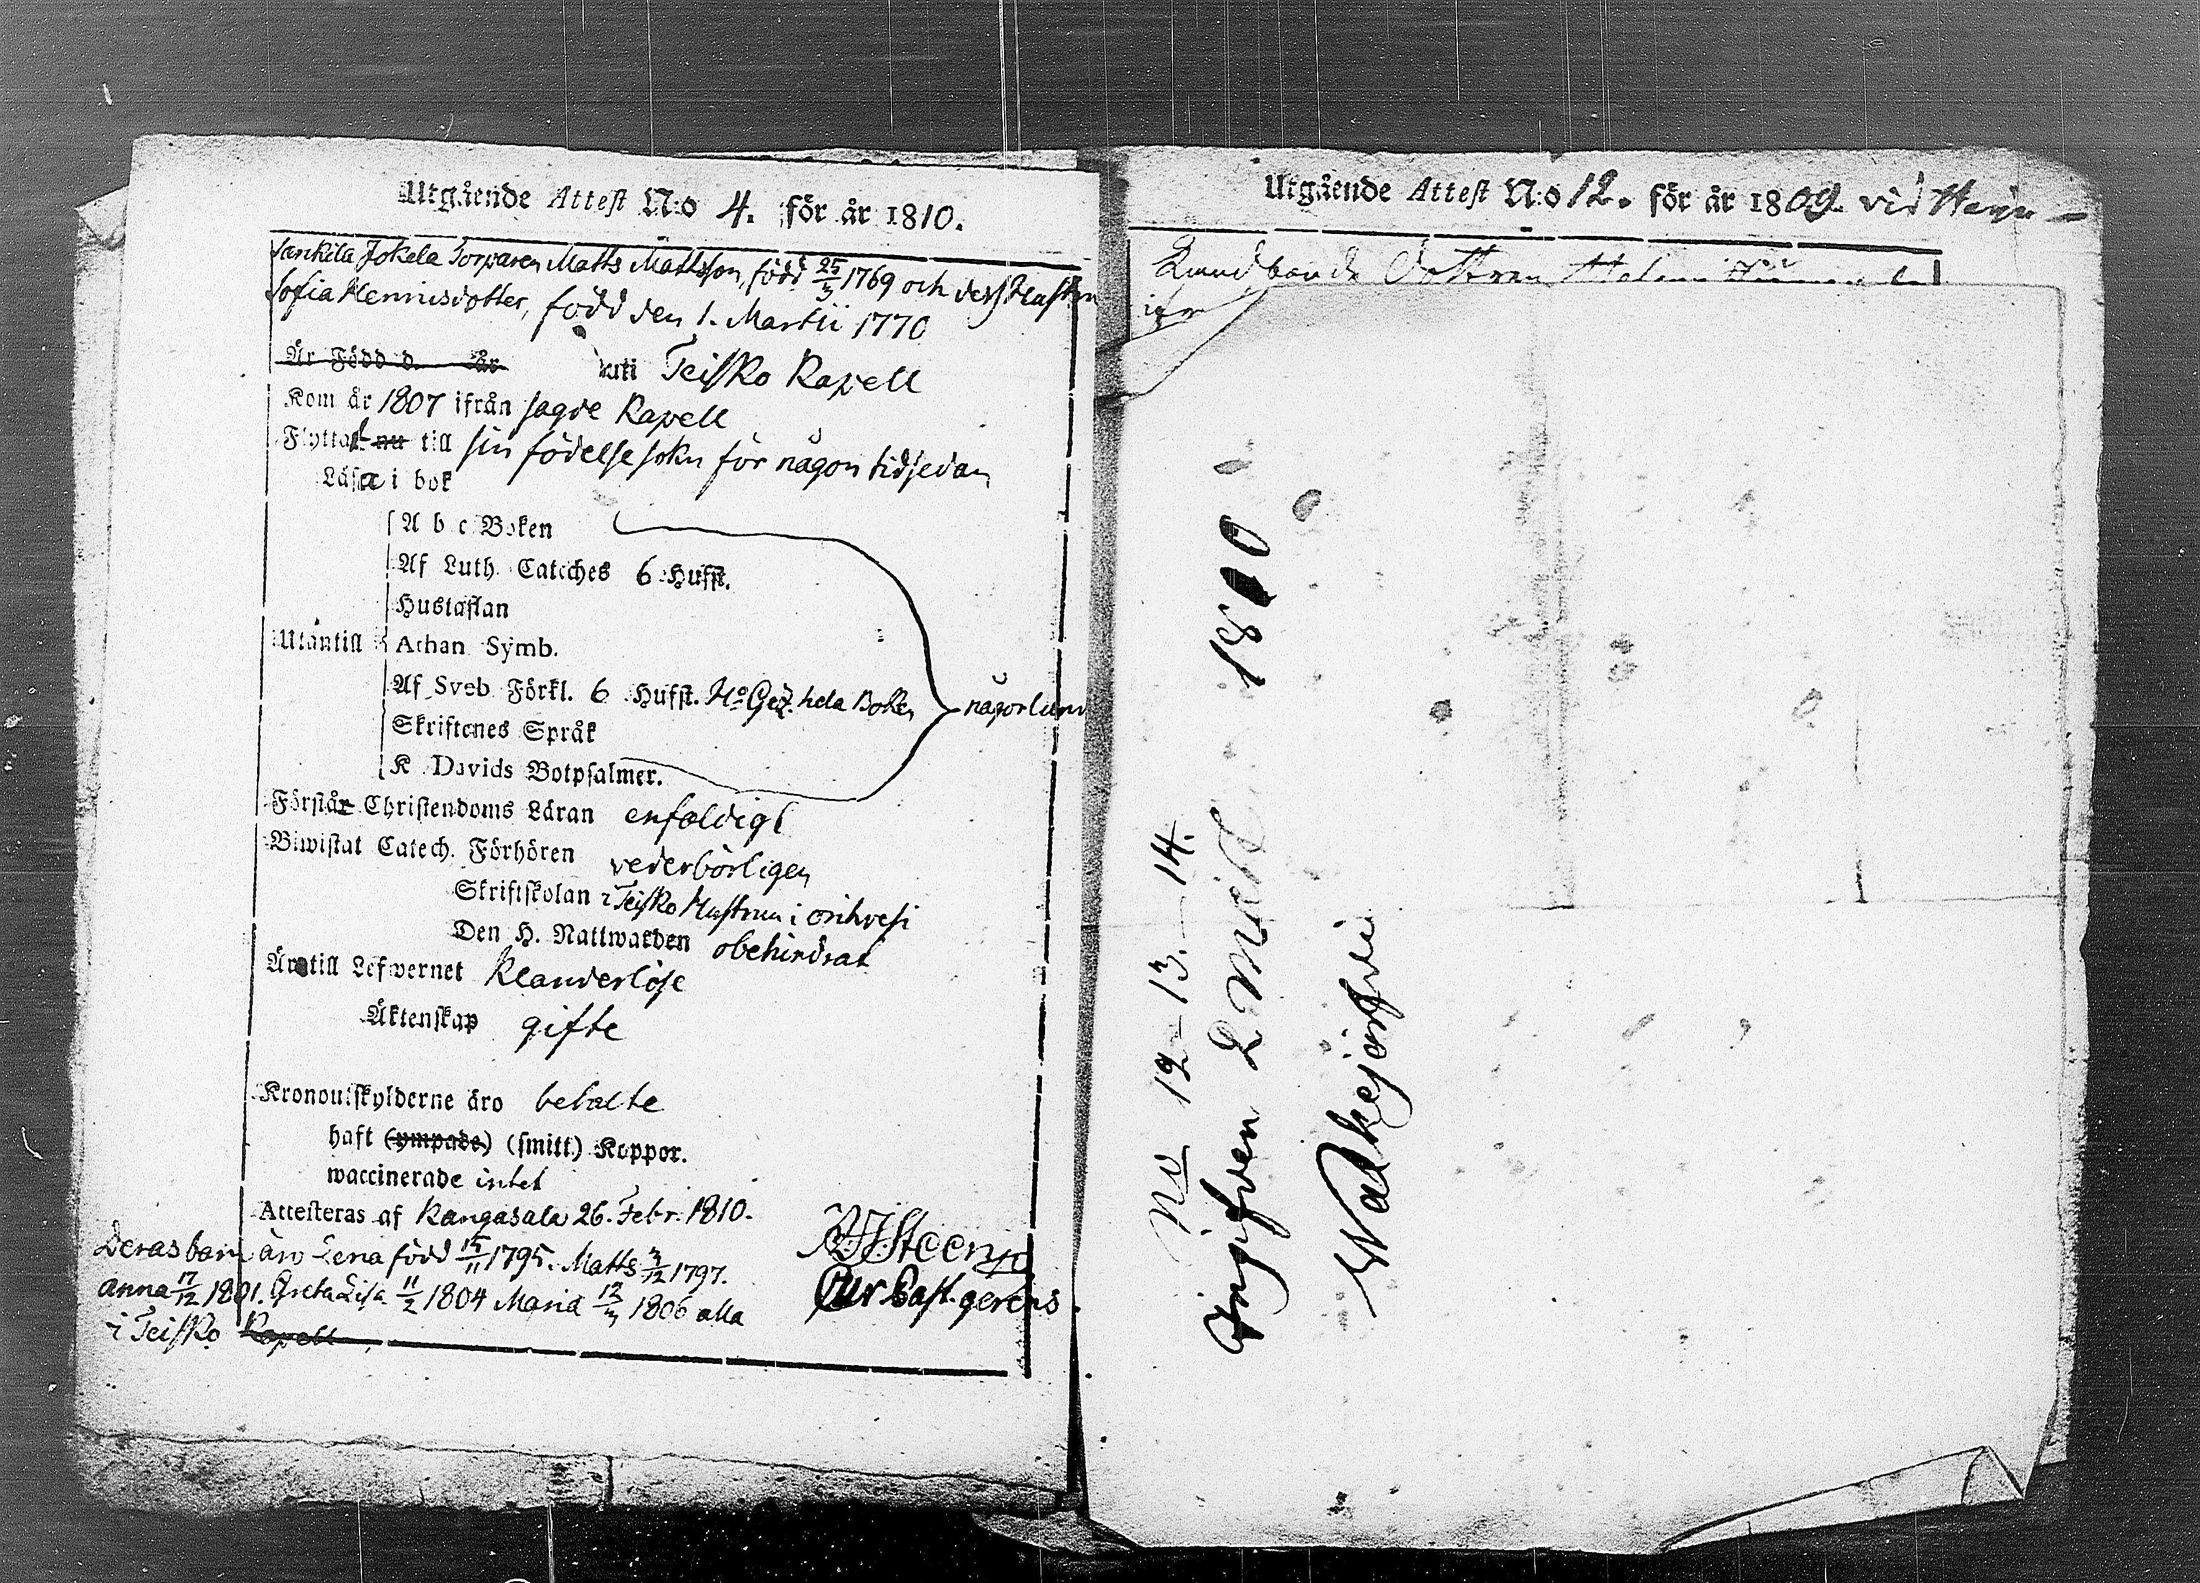 Utgående Attest N:o 4. för år 1810.
Sankila Jokela Torparen Matts Mattsson, född 25/3 1769 och dess Hustru
Sofia Henricsdotter, född den 1. Martii 1770
Är Född d. år uti Teisko Kapell
Kom år 1807 ifrån sagde Kapell
Flyttat nu till sin födelse sokn för någon tid sedan
Läsa i bok
A b c Boken
Af Luth. Cateches 6 Hufst.
Hustaflan
Utantill Athan Symb.
Af Sveb Förkl. 6 Hufst. H:o Gez. hela Boken någorlund
Skriftenes Språk
K Davids Botpsalmer.
Förstår Christendoms Läran enfaldigt
Biwistat Catech. Förhören vederbörligen
Skriftskolan i Teisko Hustrun i orihvesi
Den H. Nattwarden obehindrat
Äro till Lefwernet Klanderlöse
Äktenskap gifte
Kronoutskylderne äro betalte
haft (ympade) (smitt.) Koppor.
waccinerade intet
Attesteras af Kangasala 26. Febr. 1810.
Deras barn äro Lena född 15/11 1795. Matts 3/12 1797.
Anna 17/12 1801. Greta Lisa 11/2 1804 Maria 12/3 1806 alla
i Teisko Kapell
Steen
Cur Past. gerens.
Utgående Attest N:o 12. för år 1809. vid
Dottren
No 12 - 13. - 14.
1810